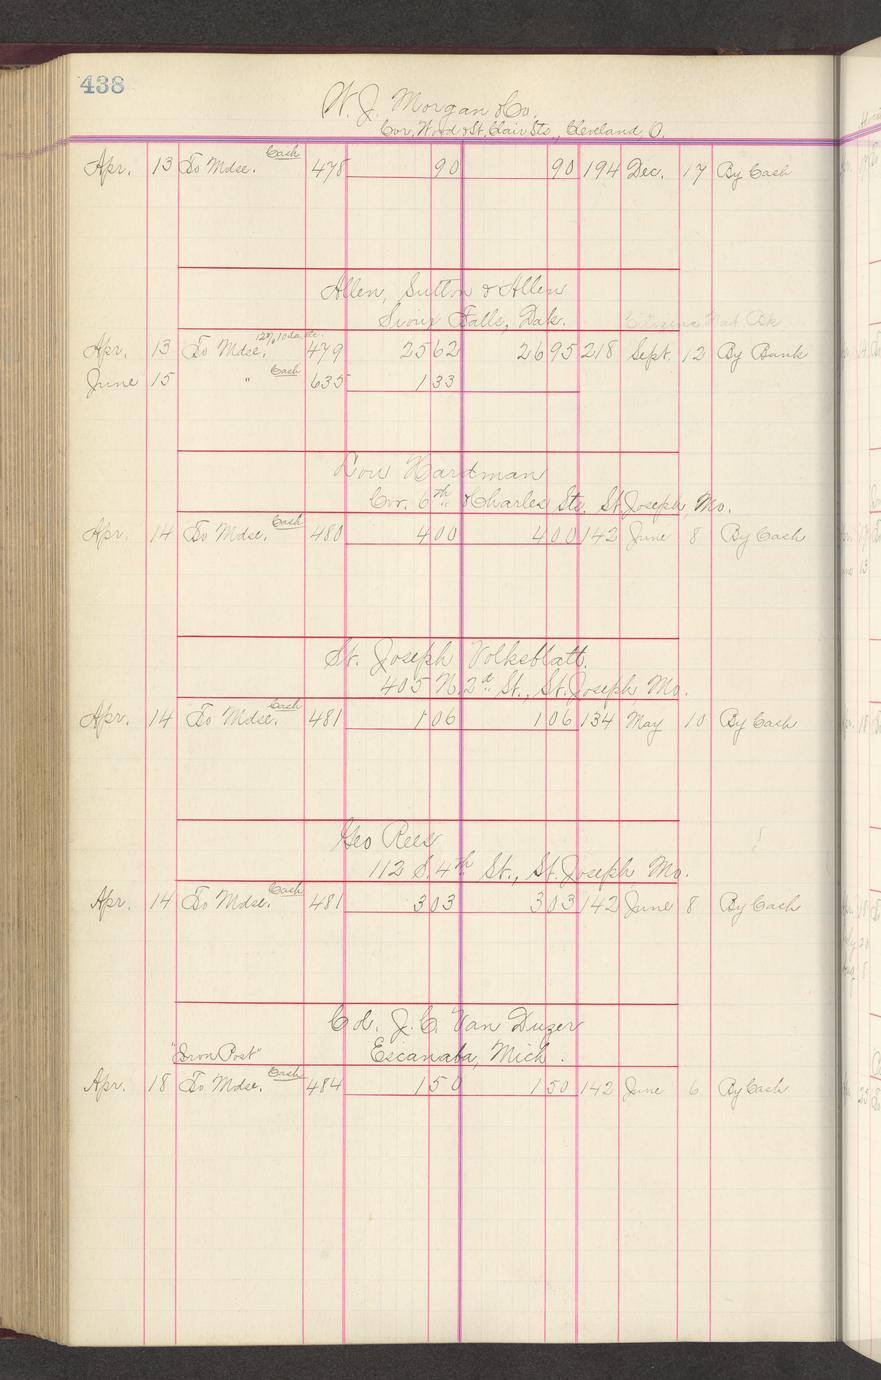 438
W. J. Morgan & Co.
Cor. Wood & St. Clair Sts., Cleveland, O.
Apr. 13 To Mdse. Cash 478 90 90 194 Dec. 17 By Cash
Allen, Sutton & Allen
Sioux Falls, Dak. Citizens Nat Bk
Apr. 13 To Mdse. 479 25 62 26 95 218 Sept. 12 By Bank
June 15 " Cash 635 1 33
Lou Hardman
Cor. 6th & Charles Sts. St. Joseph, Mo.
Apr. 14 To Mdse. Cash 480 4 00 4 00 142 June 8 By Cash
St. Joseph Volksblatt.
405 N. 2d St., St. Joseph Mo.
Apr. 14 To Mdse. Cash 481 1 06 1 06 134 May 10 By Cash
Geo Rees
112 S. 4th St., St. Joseph Mo.
Apr. 14 To Mdse. Cash 481 3 03 3 03 142 June 8 By Cash
Col. J. C. Van Duzer
"Iron Post" Escanaba, Mich.
Apr. 18 To Mdse. Cash 484 1 50 1 50 142 June 6 By Cash